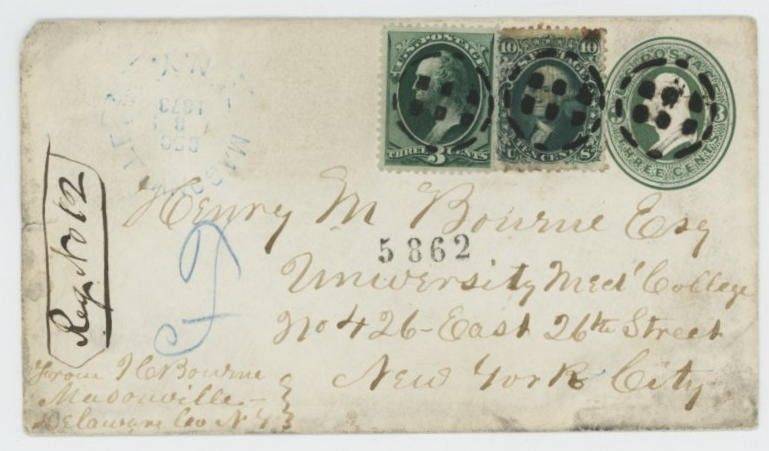 U.S. POSTAGE
THREE 3 CENTS
10 10
TEN CENTS
U S
U.S. POSTAGE
THREE CENTS
3
N.Y.
DEC
8
1873
Reg. No 12
Henry M Bourne Esq
5862
University Med' College
No 426-East 26th Street
New York City
From J C Bourne
Masonville
Delaware Co N Y